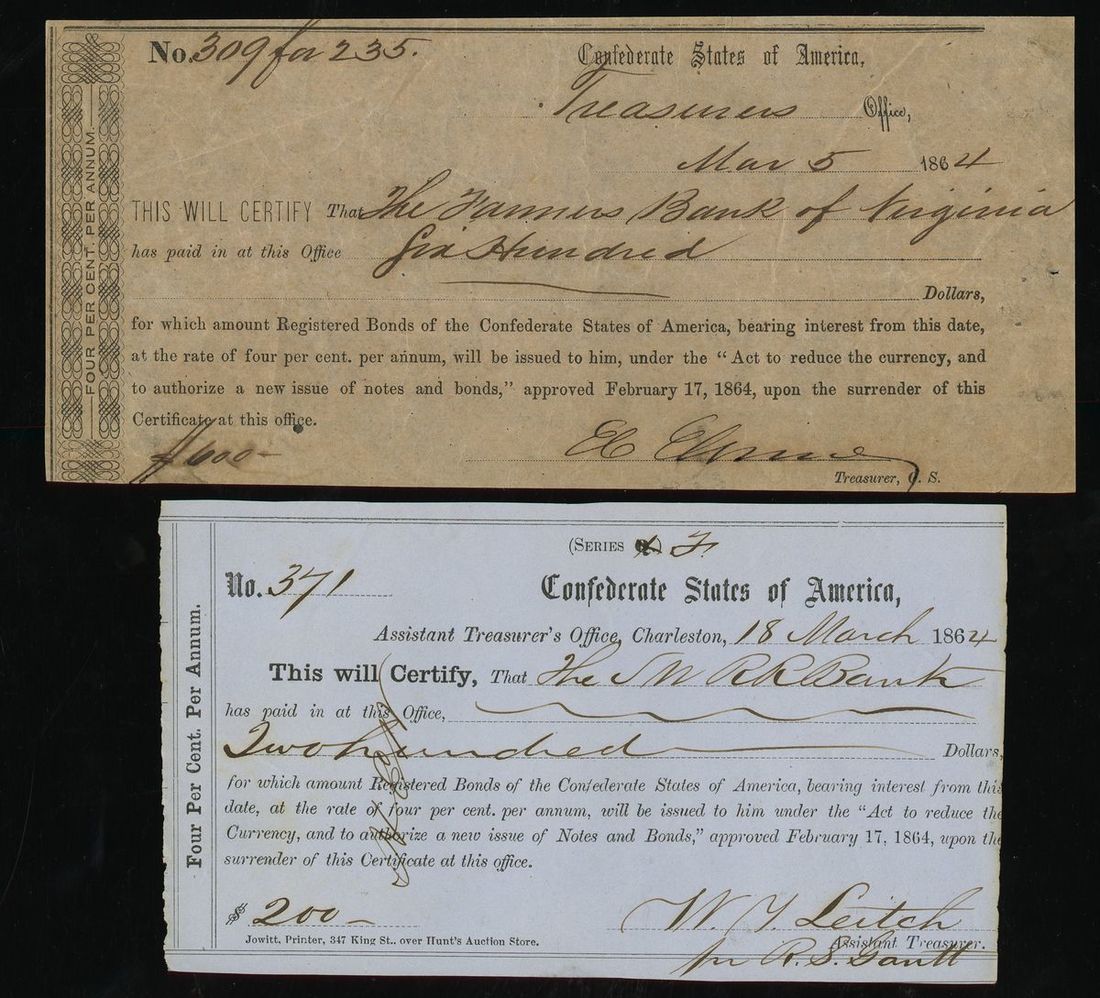 No. 309 for 235.
Confederate States of America,
Treasurers Office,
Mar 5 1864
THIS WILL CERTIFY That The Farmers Bank of Virginia
has paid in at this Office Six Hundred
Dollars,
for which amount Registered Bonds of the Confederate States of America, bearing interest from this date,
at the rate of four per cent. per annum, will be issued to him, under the “Act to reduce the currency, and
to authorize a new issue of notes and bonds,” approved February 17, 1864, upon the surrender of this
Certificate at this office.
$600-
Treasurer, C. S.
FOUR PER CENT. PER ANNUM
(SERIES F
No. 371
Confederate States of America,
Assistant Treasurer's Office, Charleston, 18 March 1864
This will Certify, That The S W R R Bank
has paid in at this Office,
Two hundred Dollars,
for which amount Registered Bonds of the Confederate States of America, bearing interest from this
date, at the rate of four per cent. per annum, will be issued to him under the “Act to reduce the
Currency, and to authorize a new issue of Notes and Bonds,” approved February 17, 1864, upon the
surrender of this Certificate at this office.
$ 200-
W. Y. Leitch
Assistant Treasurer.
pr R. S. Gantt
Jowitt, Printer, 347 King St., over Hunt's Auction Store.
Four Per Cent. Per Annum.